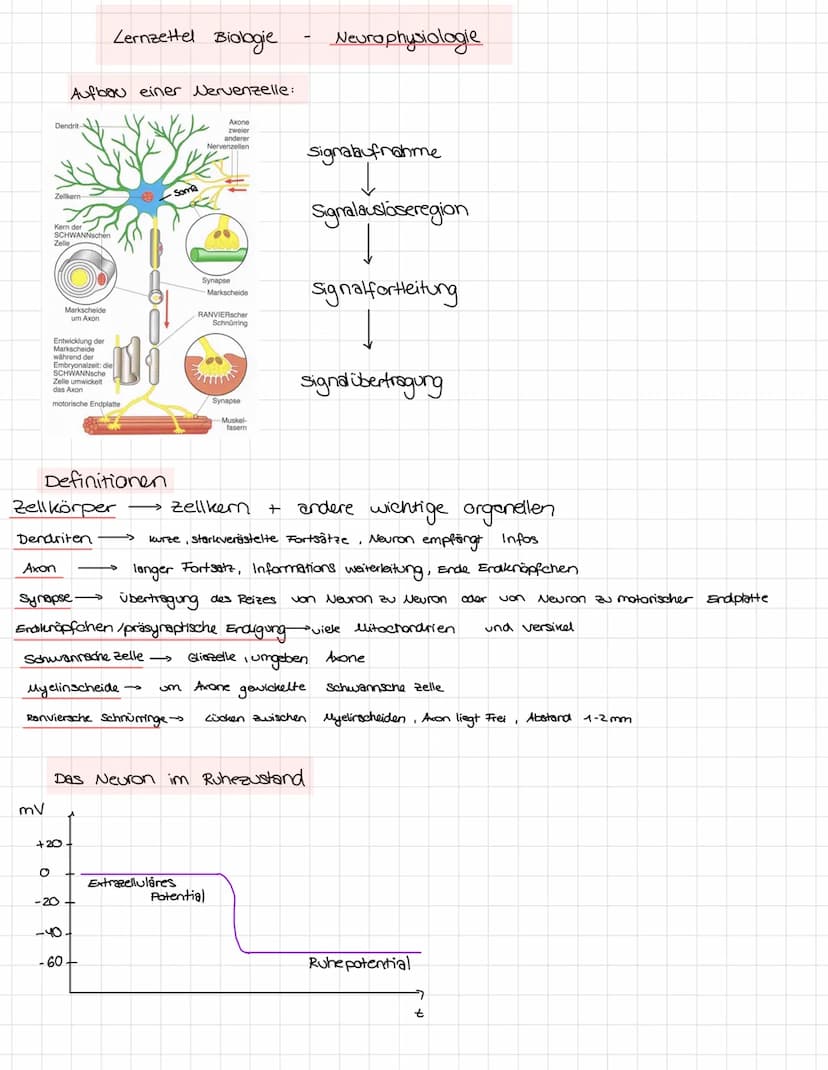 Lernzettel Biologie - Neurophysiologie
Aufbau einer Nervenzelle:
Dendrit
Axone
zweier
anderer
Nervenzellen
Soma
Zellkern
Kern der
SCHWANNschen
Zelle
Synapse
Markscheide
Markscheide
um Axon
RANVIERscher
Schnürring
Entwicklung der
Markscheide
während der
Embryonalzeit: die
SCHWANNsche
Zelle umwickelt
das Axon
Synapse
motorische Endplatte
Muskel-
fasern
Signalaufnahme
Signalauslöseregion
Signalfortleitung
Signalübertragung
Definitionen
Zellkörper → Zellkern + andere wichtige organellen
Dendriten → kurze, starkverästelte Fortsätze, Neuron empfängt Infos
Axon → langer Fortsatz, Informations weiterleitung, Ende Endknöpfchen
Synapse → Übertragung des Reizes von Neuron zu Neuron oder von Neuron zu motorischer Endplatte
Endknöpfchen/präsynaptische Endigung → viele Mitochondrien und versikel
Schwannsche Zelle → Gliazelle, umgeben Axone
Myelinscheide → um Axone gewickelte Schwannsche Zelle
Ranviersche Schnürringe → Lücken zwischen Myelinscheiden, Axon liegt Frei, Abstand 1-2mm
Das Neuron im Ruhezustand
mV
+20
0
Extrazelluläres
Potential
-20
-40
-60
Ruhepotential
t